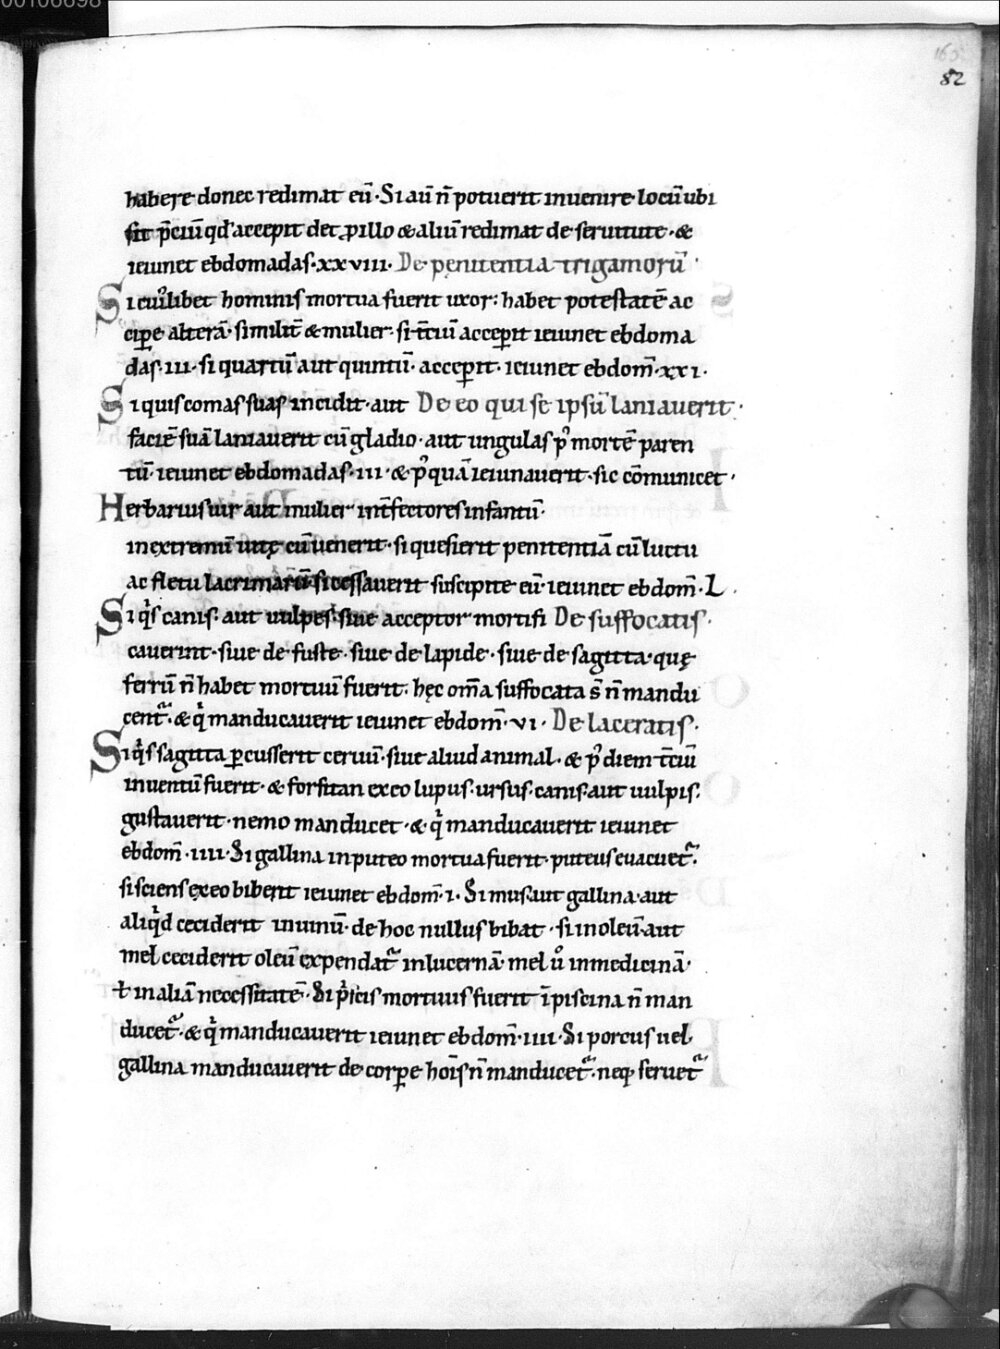 00106698
165
82
habere donec redimat eū · Si aū n̄ potuerit inuenire locū ubi
sit p̄ciū qd̄ accepit det ꝓ illo & aliū redimat de seruitute · &
ieiunet ebdomadas · xxviii · De penitentia trigamorū ·
Si cuiꝰlibet hominis mortua fuerit uxor : habet potestatē ac
cipe alterā · similit̄ & mulier · si t̄ciū acceꝑit ieiunet ebdoma
das · iii · si quartū aut quintū · acceꝑit · ieiunet ebdom̄ · xxi ·
Si quis comas suas incidit · aut De eo qui se ipsū laniauerit ·
faciē suā laniauerit cū gladio · aut ungulas pꝰ mortē paren
tū · ieiunet ebdomadas · iii · & pꝰquā ieiunauerit · sic cōmunicet ·
Herbarius uir aut mulier int̄fectores infantū ·
in extremū uitę cū uenerit · si quesierit penitentiā cū luctu
ac fletu lacrimarū si cessauerit suscipite eū · ieiunet ebdom̄ · L ·
Si qͥs canis · aut uulpes · siue acceptor mortifi De suffocatis ·
cauerint · siue de fuste · siue de lapide · siue de sagitta · quę
ferrū n̄ habet mortuū fuerit : hęc om̄a suffocata s̄ n̄ mandu
centᷓ · & qͥ manducauerit ieiunet ebdom̄ · vi · De laceratis ·
Si qͥs sagitta ꝑcusserit ceruū · siue aliud animal · & pꝰ diem t̄ciū
inuentū fuerit · & forsitan ex eo lupus · ursus · canis · aut uulpis ·
gustauerit · nemo manducet · & qͥ manducauerit ieiunet
ebdom̄ · iiii · Si gallina in puteo mortua fuerit · puteus euacuetᷓ ·
si sciens ex eo biberit ieiunet ebdom̄ · i · Si mus aut gallina · aut
aliqͥd ceciderit in uinū · de hoc nullus bibat · si in oleū · aut
mel ceciderit oleū expendatᷓ in lucernā · mel uͦ in medicinā ·
ł in aliā necessitatē · Si pͥscis mortuus fuerit ī piscina n̄ man
ducetᷓ · & qͥ manducauerit ieiunet ebdom̄ · iiii · Si porcus uel
gallina manducauerit de corꝑe hoīs n̄ manducetᷓ · neqꝫ seruetᷓ